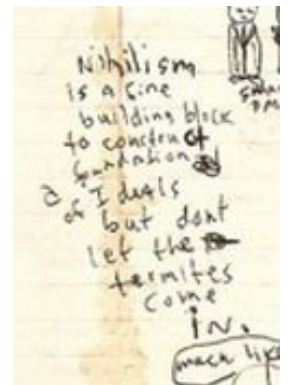 Nihilism
is a fine
building block
to construct
foundation
of Ideals
but dont
let the
termites
come
in.
much like